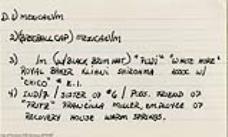 D. 1) MEXICAN/M
2) (BASEBALL CAP) MEXICAN/M
3) /M (W/BLACK BRIM HAT) "PLUV" "WHITE MIKE"
ROYAL BAKER KLIBUNI SHIROAMA ASSOC W/
"CHICO" * E.I.
4) IND/F / SISTER OF #6 / POSS. FRIEND OF
"FRITZ" FRANZILLA MILLER, EMPLOYEE OF
RECOVERY HOUSE WARM SPRINGS.